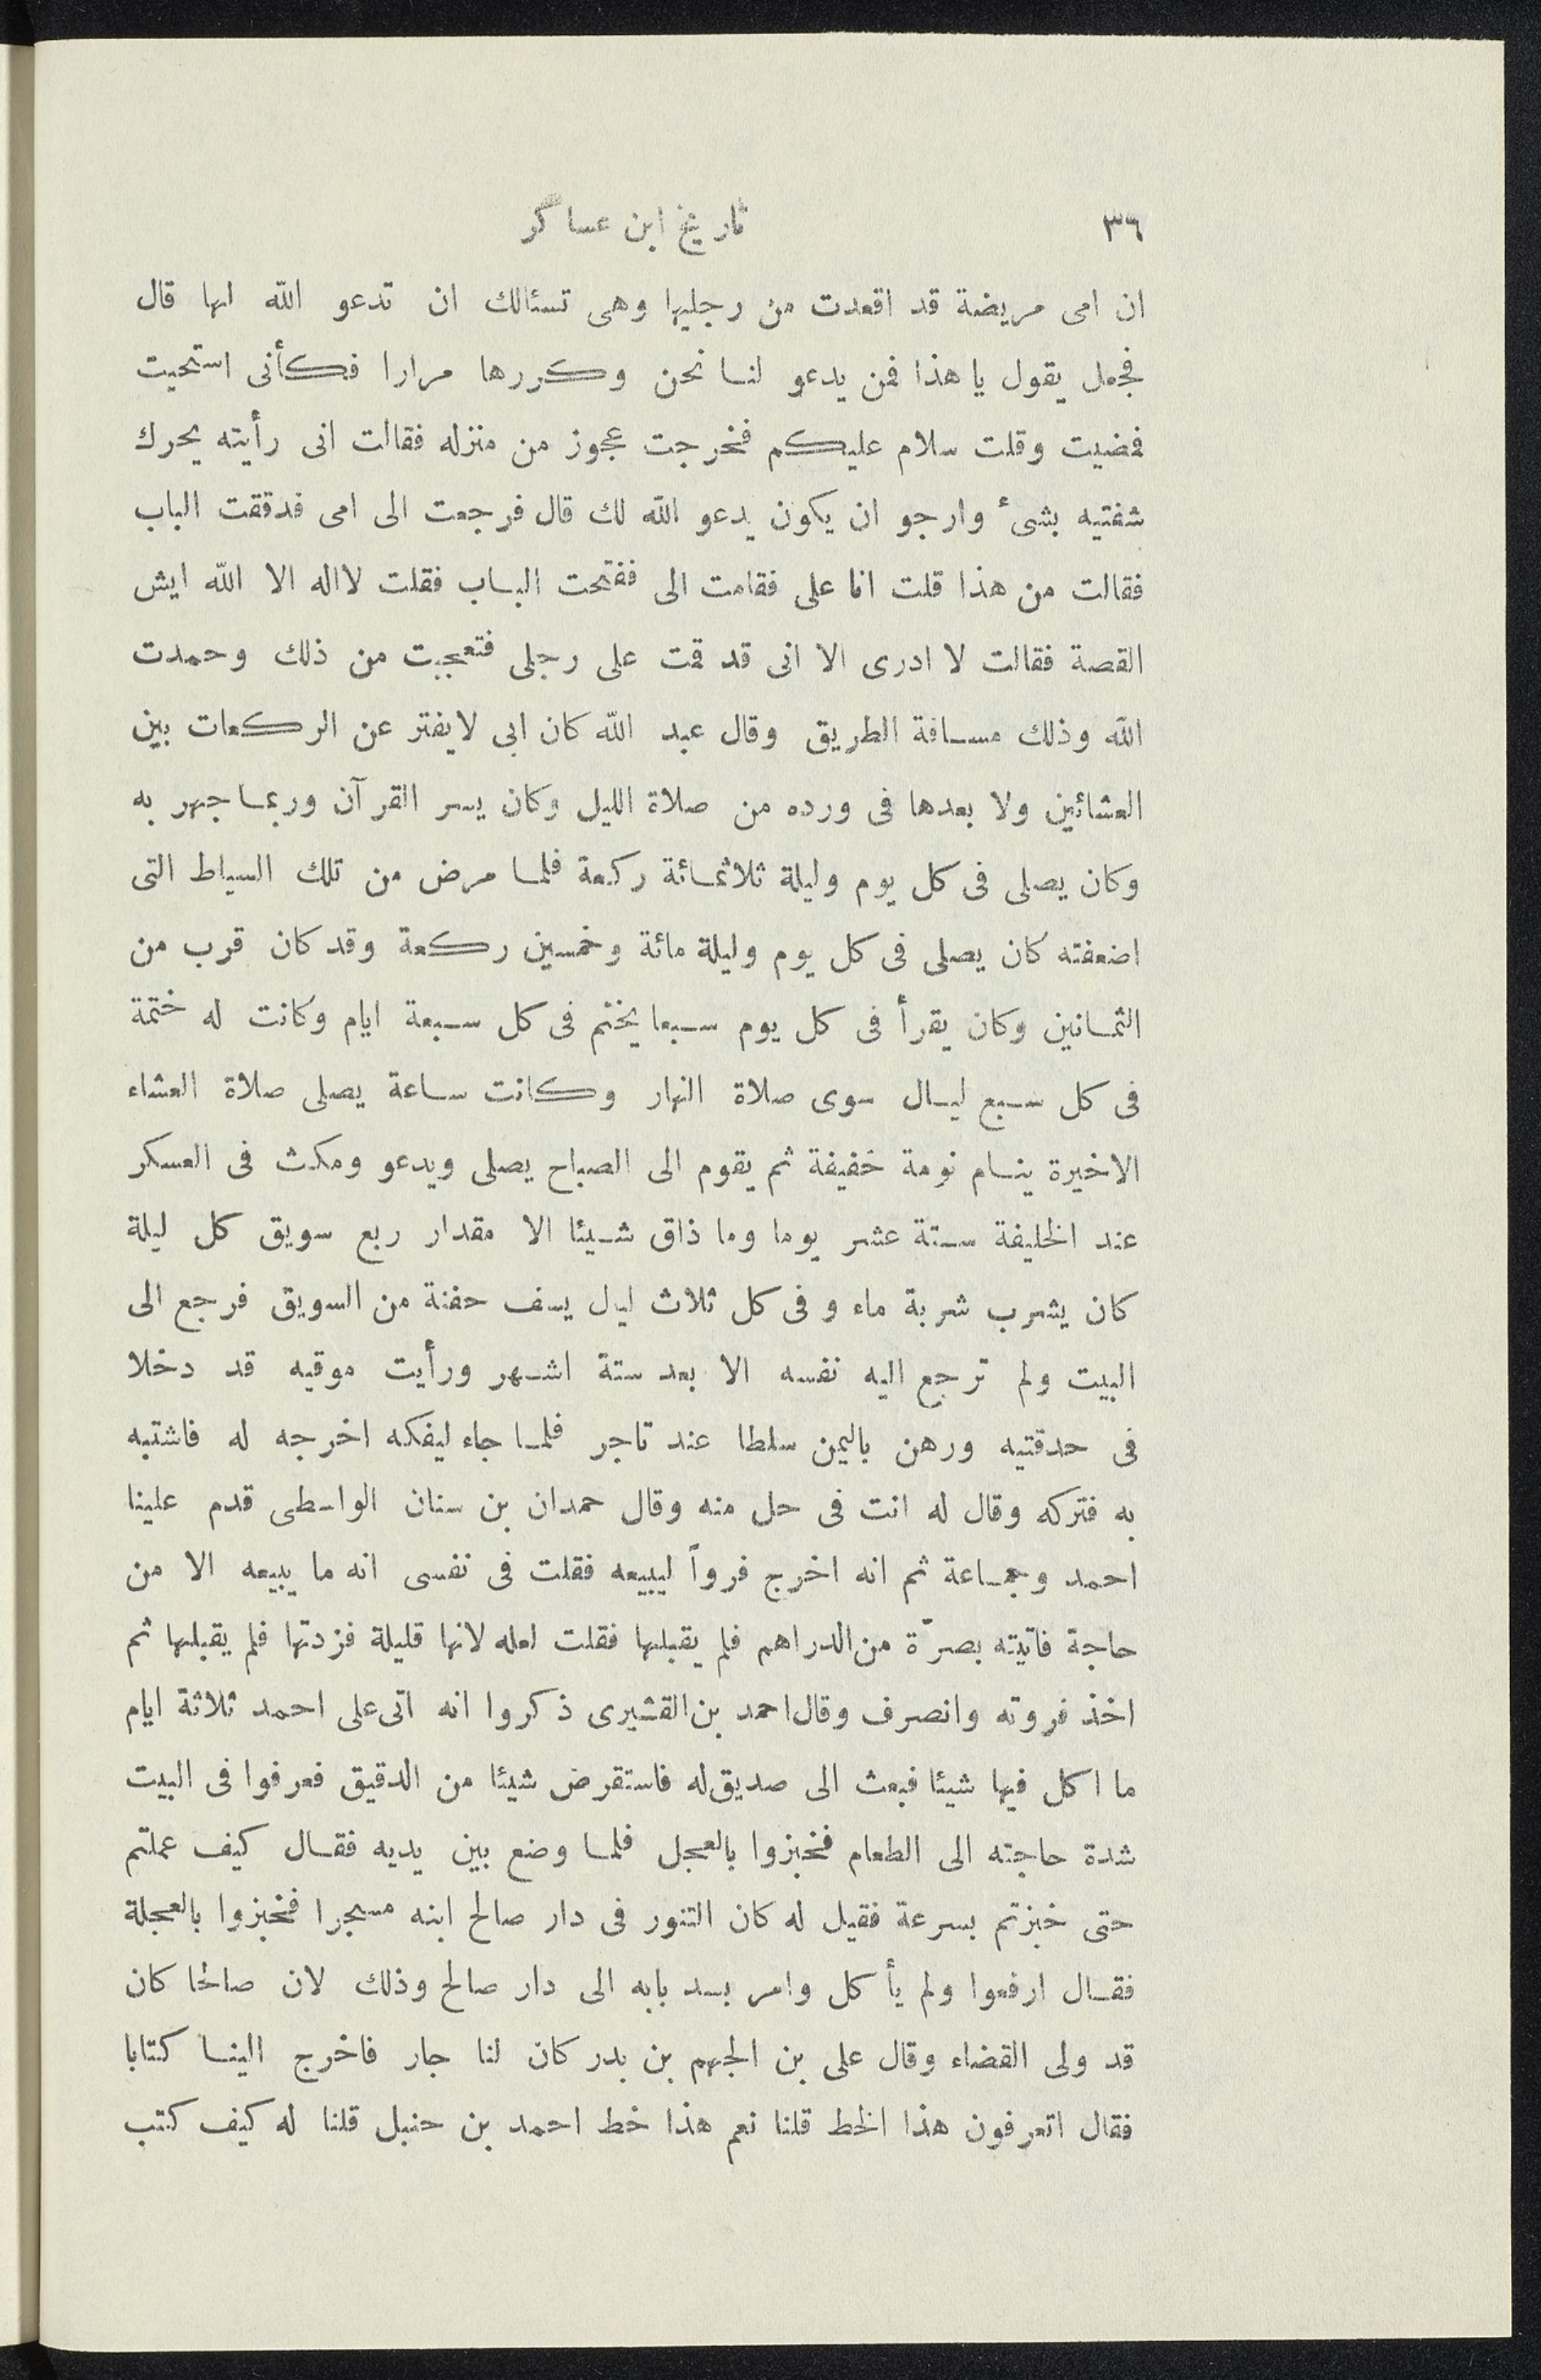 ٣٦
تاريخ ابن عساكر
ان امى مريضة قد اقعدت من رجليها وهى تسئالك ان تدعو الله لها قال
فجعل يقول يا هذا فمن يدعو لنا نحن وكررها مرارا فكأنى استحيت
فمضيت وقلت سلام عليكم فخرجت عجوز من منزله فقالت انى رأيته يحرك
شفتيه بشىء وارجو ان يكون يدعو الله لك قال فرجعت الى امى فدققت الباب
فقالت من هذا قلت انا على فقامت الى ففتحت الباب فقلت لااله الا الله ايش
القصة فقالت لا ادرى الا انى قد قمت على رجلى فتعجبت من ذلك وحمدت
الله وذلك مسافة الطريق وقال عبد الله كان ابى لايفتر عن الركعات بين
العشائين ولا بعدها فى ورده من صلاة الليل وكان يسر القرآن وربما جهر به
وكان يصلى فى كل يوم وليلة ثلاثمائة ركعة فلما مرض من تلك السياط التى
اضعفته كان يصلى فى كل يوم وليلة مائة وخمسين ركعة وقد كان قرب من
الثمانين وكان يقرأ فى كل يوم سبعا يختم فى كل سبعة ايام وكانت له ختمة
فى كل سبع ليال سوى صلاة النهار وكانت ساعة يصلى صلاة العشاء
الاخيرة ينام نومة خفيفة ثم يقوم الى الصباح يصلى ويدعو ومكث فى العسكر
عند الخليفة ستة عشر يوما وما ذاق شيئا الا مقدار ربع سويق كل ليلة
كان يشرب شربة ماء و فى كل ثلاث ليال يسف حفنة من السويق فرجع الى
البيت ولم ترجع اليه نفسه الا بعد ستة اشهر ورأيت موقيه قد دخلا
فى حدقتيه ورهن باليمن سلطا عند تاجر فلما جاء ليفكه اخرجه له فاشتبه
به فتركه وقال له انت فى حل منه وقال حمدان بن سنان الواسطى قدم علينا
احمد وجماعة ثم انه اخرج فرواً ليبيعه فقلت فى نفسى انه ما يبيعه الا من
حاجة فاتيته بصرّة من الدراهم فلم يقبلها فقلت لعله لانها قليلة فزدتها فلم يقبلها ثم
اخذ فروته وانصرف وقال احمد بن القشيرى ذكروا انه اتى على احمد ثلاثة ايام
ما اكل فيها شيئا فبعث الى صديق له فاستقرض شيئا من الدقيق فعرفوا فى البيت
شدة حاجته الى الطعام فخبزوا بالعجل فلما وضع بين يديه فقال كيف عملتم
حتى خبزتم بسرعة فقيل له كان التنور فى دار صالح ابنه مسجرا فخبزوا بالعجلة
فقال ارفعوا ولم يأكل وامر بسد بابه الى دار صالح وذلك لان صالحا كان
قد ولى القضاء وقال على بن الجهم بن بدر كان لنا جار فاخرج الينا كتابا
فقال اتعرفون هذا الخط قلنا نعم هذا خط احمد بن حنبل قلنا له كيف كتب